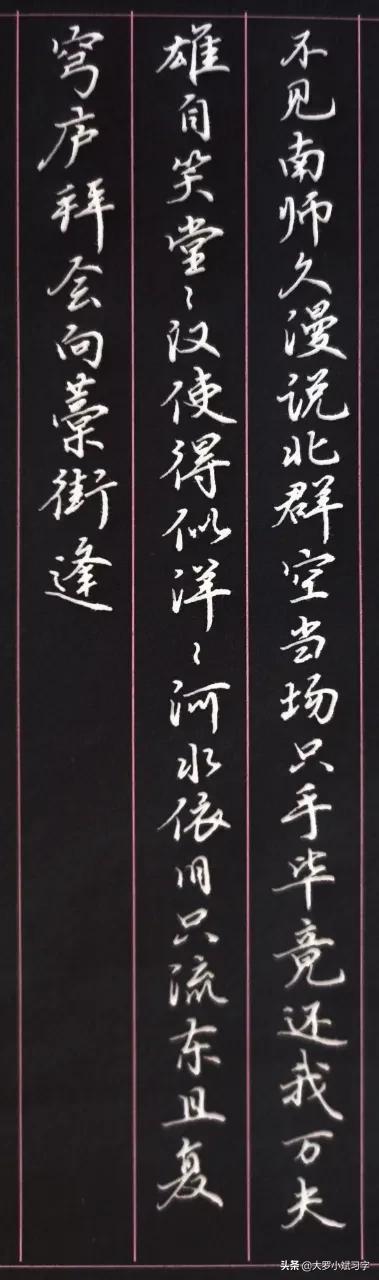 不见南师久漫说北群空当场只手毕竟还我万夫
雄自笑堂〻汉使得似洋〻河水依旧只流东且复
穹庐拜会向藁街逢
头条@大罗小斌习字